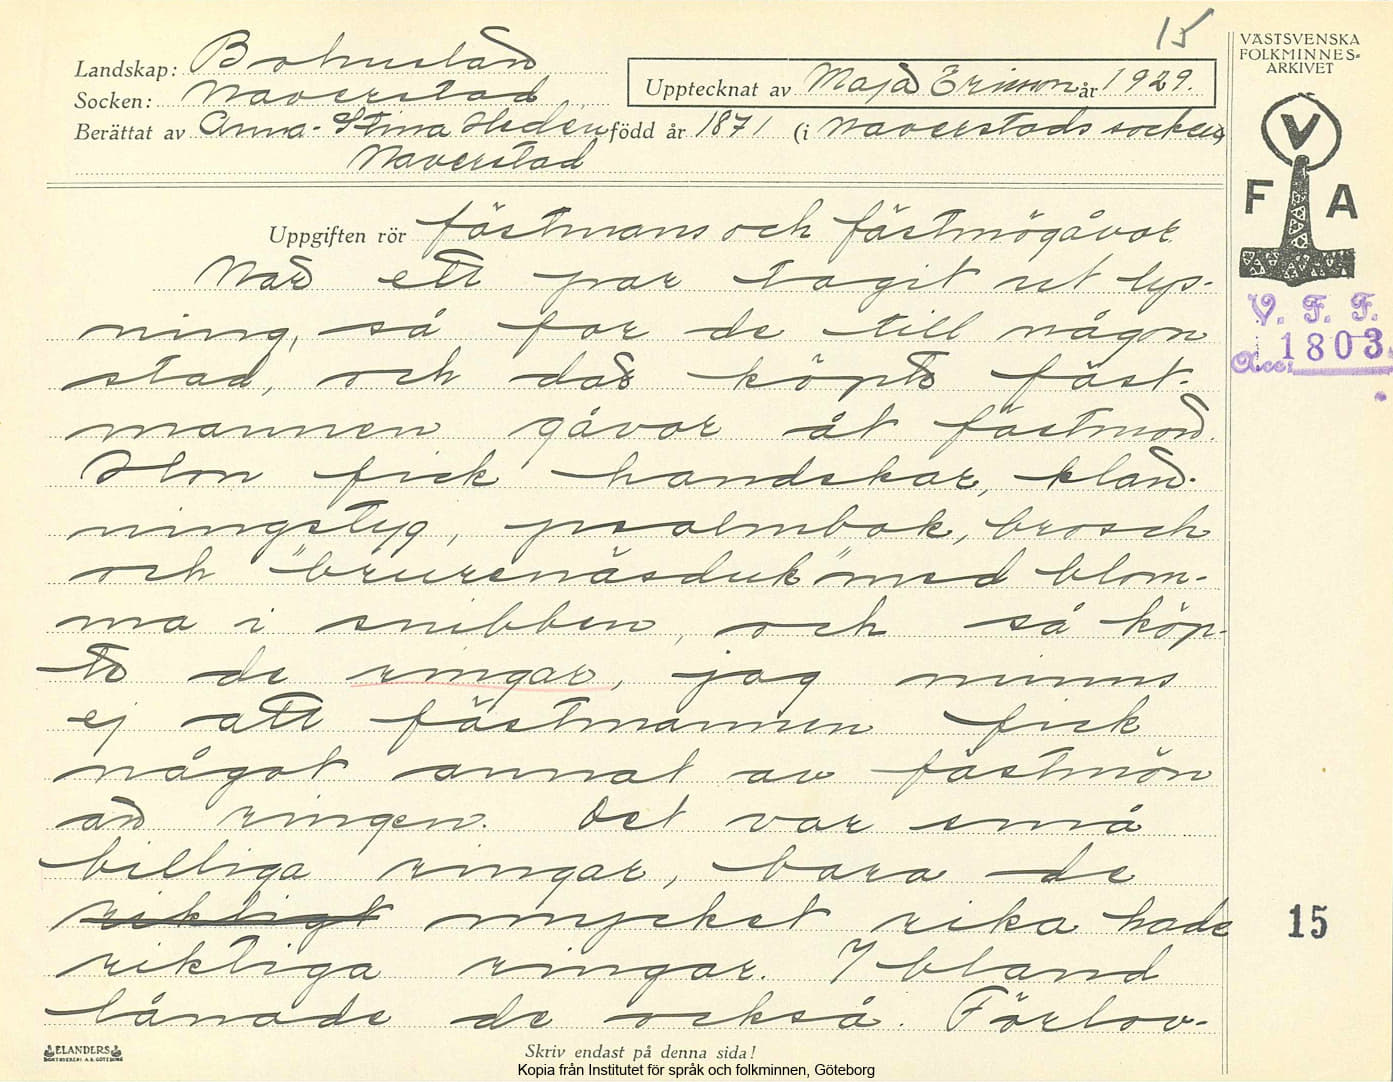 15
VÄSTSVENSKA
FOLKMINNES-
ARKIVET
Landskap: Bohuslän
Socken: Naverstad
Upptecknat av Maja Ericson år 1929.
Berättat av Anna-Stina Heden född år 1871 (i Naverstads socken)
Naverstad
V
F A
Uppgiften rör fästmans och fästmögåvor
När ett par tagit ut lys-
ning, så for de till någon
stad, och där köpte fäst-
mannen gåvor åt fästmön.
Hon fick handskar, klän-
ningstyg, psalmbok, brosch
och "brursnäsduk" med blom-
ma i snibben, och så köp-
te de ringar, jag minns
ej att fästmannen fick
något annat av fästmön
än ringen. Det var små
billiga ringar, bara de
riktigt mycket rika hade
riktiga ringar. Ibland
lånade de också. Förlov-
V. F. F.
Acc: 1803.
15
ELANDERS
Skriv endast på denna sida!
Kopia från Institutet för språk och folkminnen, Göteborg